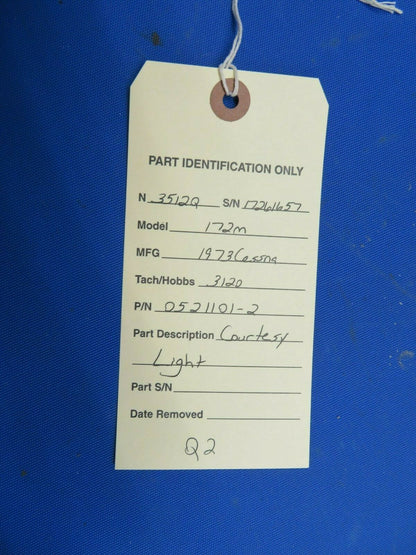 PART IDENTIFICATION ONLY
N 3512Q S/N 17261657
Model 172M
MFG 1973 Cessna
Tach/Hobbs 3120
P/N 0521101-2
Part Description Courtesy
Light
Part S/N
Date Removed
Q2